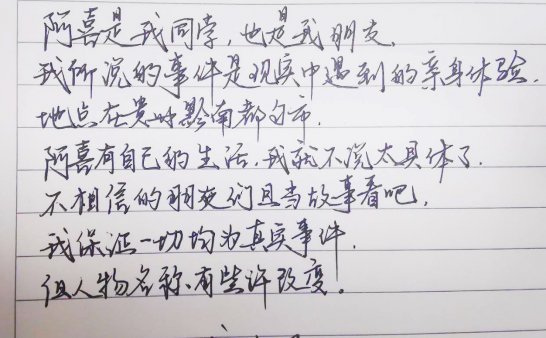 阿喜是我同学，也是我朋友，
我所说的事件是现实中遇到的亲身体验．
地点在贵州黔南都匀市．
阿喜有自己的生活．我就不说太具体了．
不相信的朋友们且当故事看吧，
我保证一切均为真实事件．
但人物名称、有些许改变！